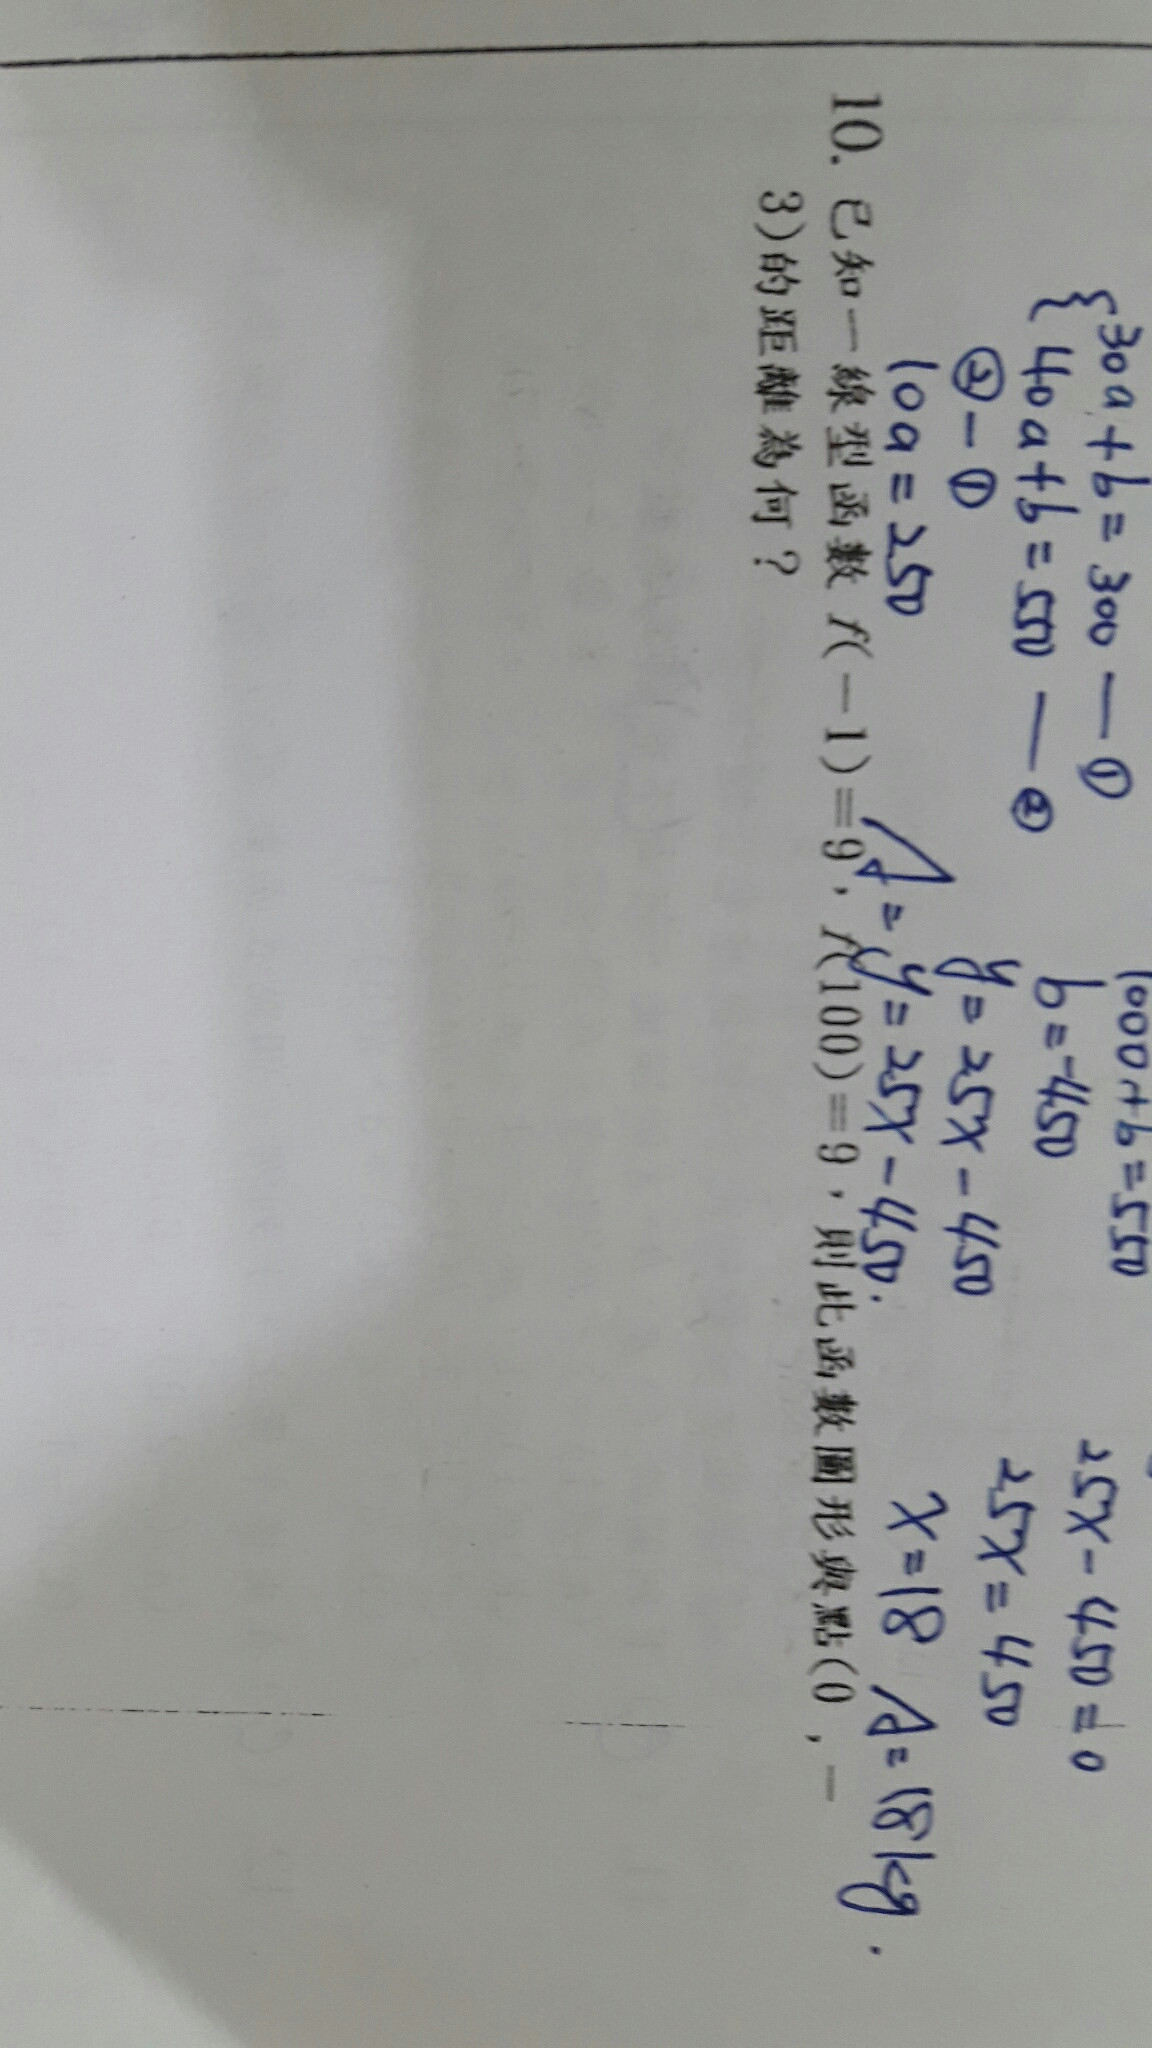 {30a+b=300—①
1000+b=550
25x-450=0
40a+b=550—②
b=-450
25x=450
②-①
y=25x-450
x=18
10a=250
A=y=25x-450.
A=18kg.
10. 已知一線型函數 f(-1)=9,f(100)=9,則此函數圖形與點(0,-
3)的距離為何?